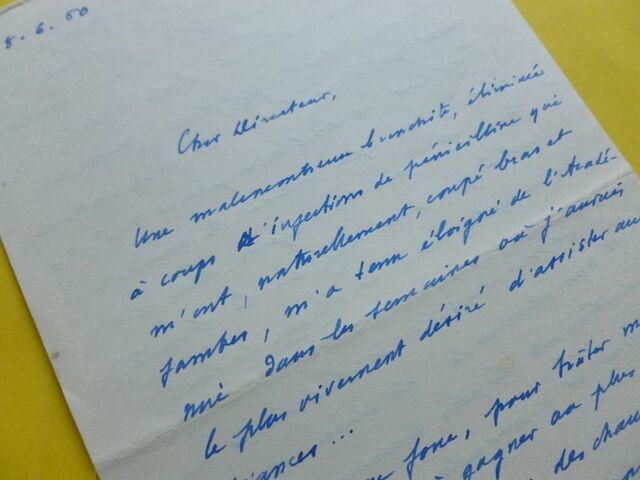 8.6.50
Cher Directeur,
Une malencontreuse bronchite, éliminée
à coups d'injections de pénicilline qui
m'ont, naturellement, coupé bras et
jambes, m'a tenu éloigné de l'Acadé-
mie dans les semaines où j'aurais
le plus vivement désiré d'assister aux
séances...
pour hâter
à gagner au plus
des